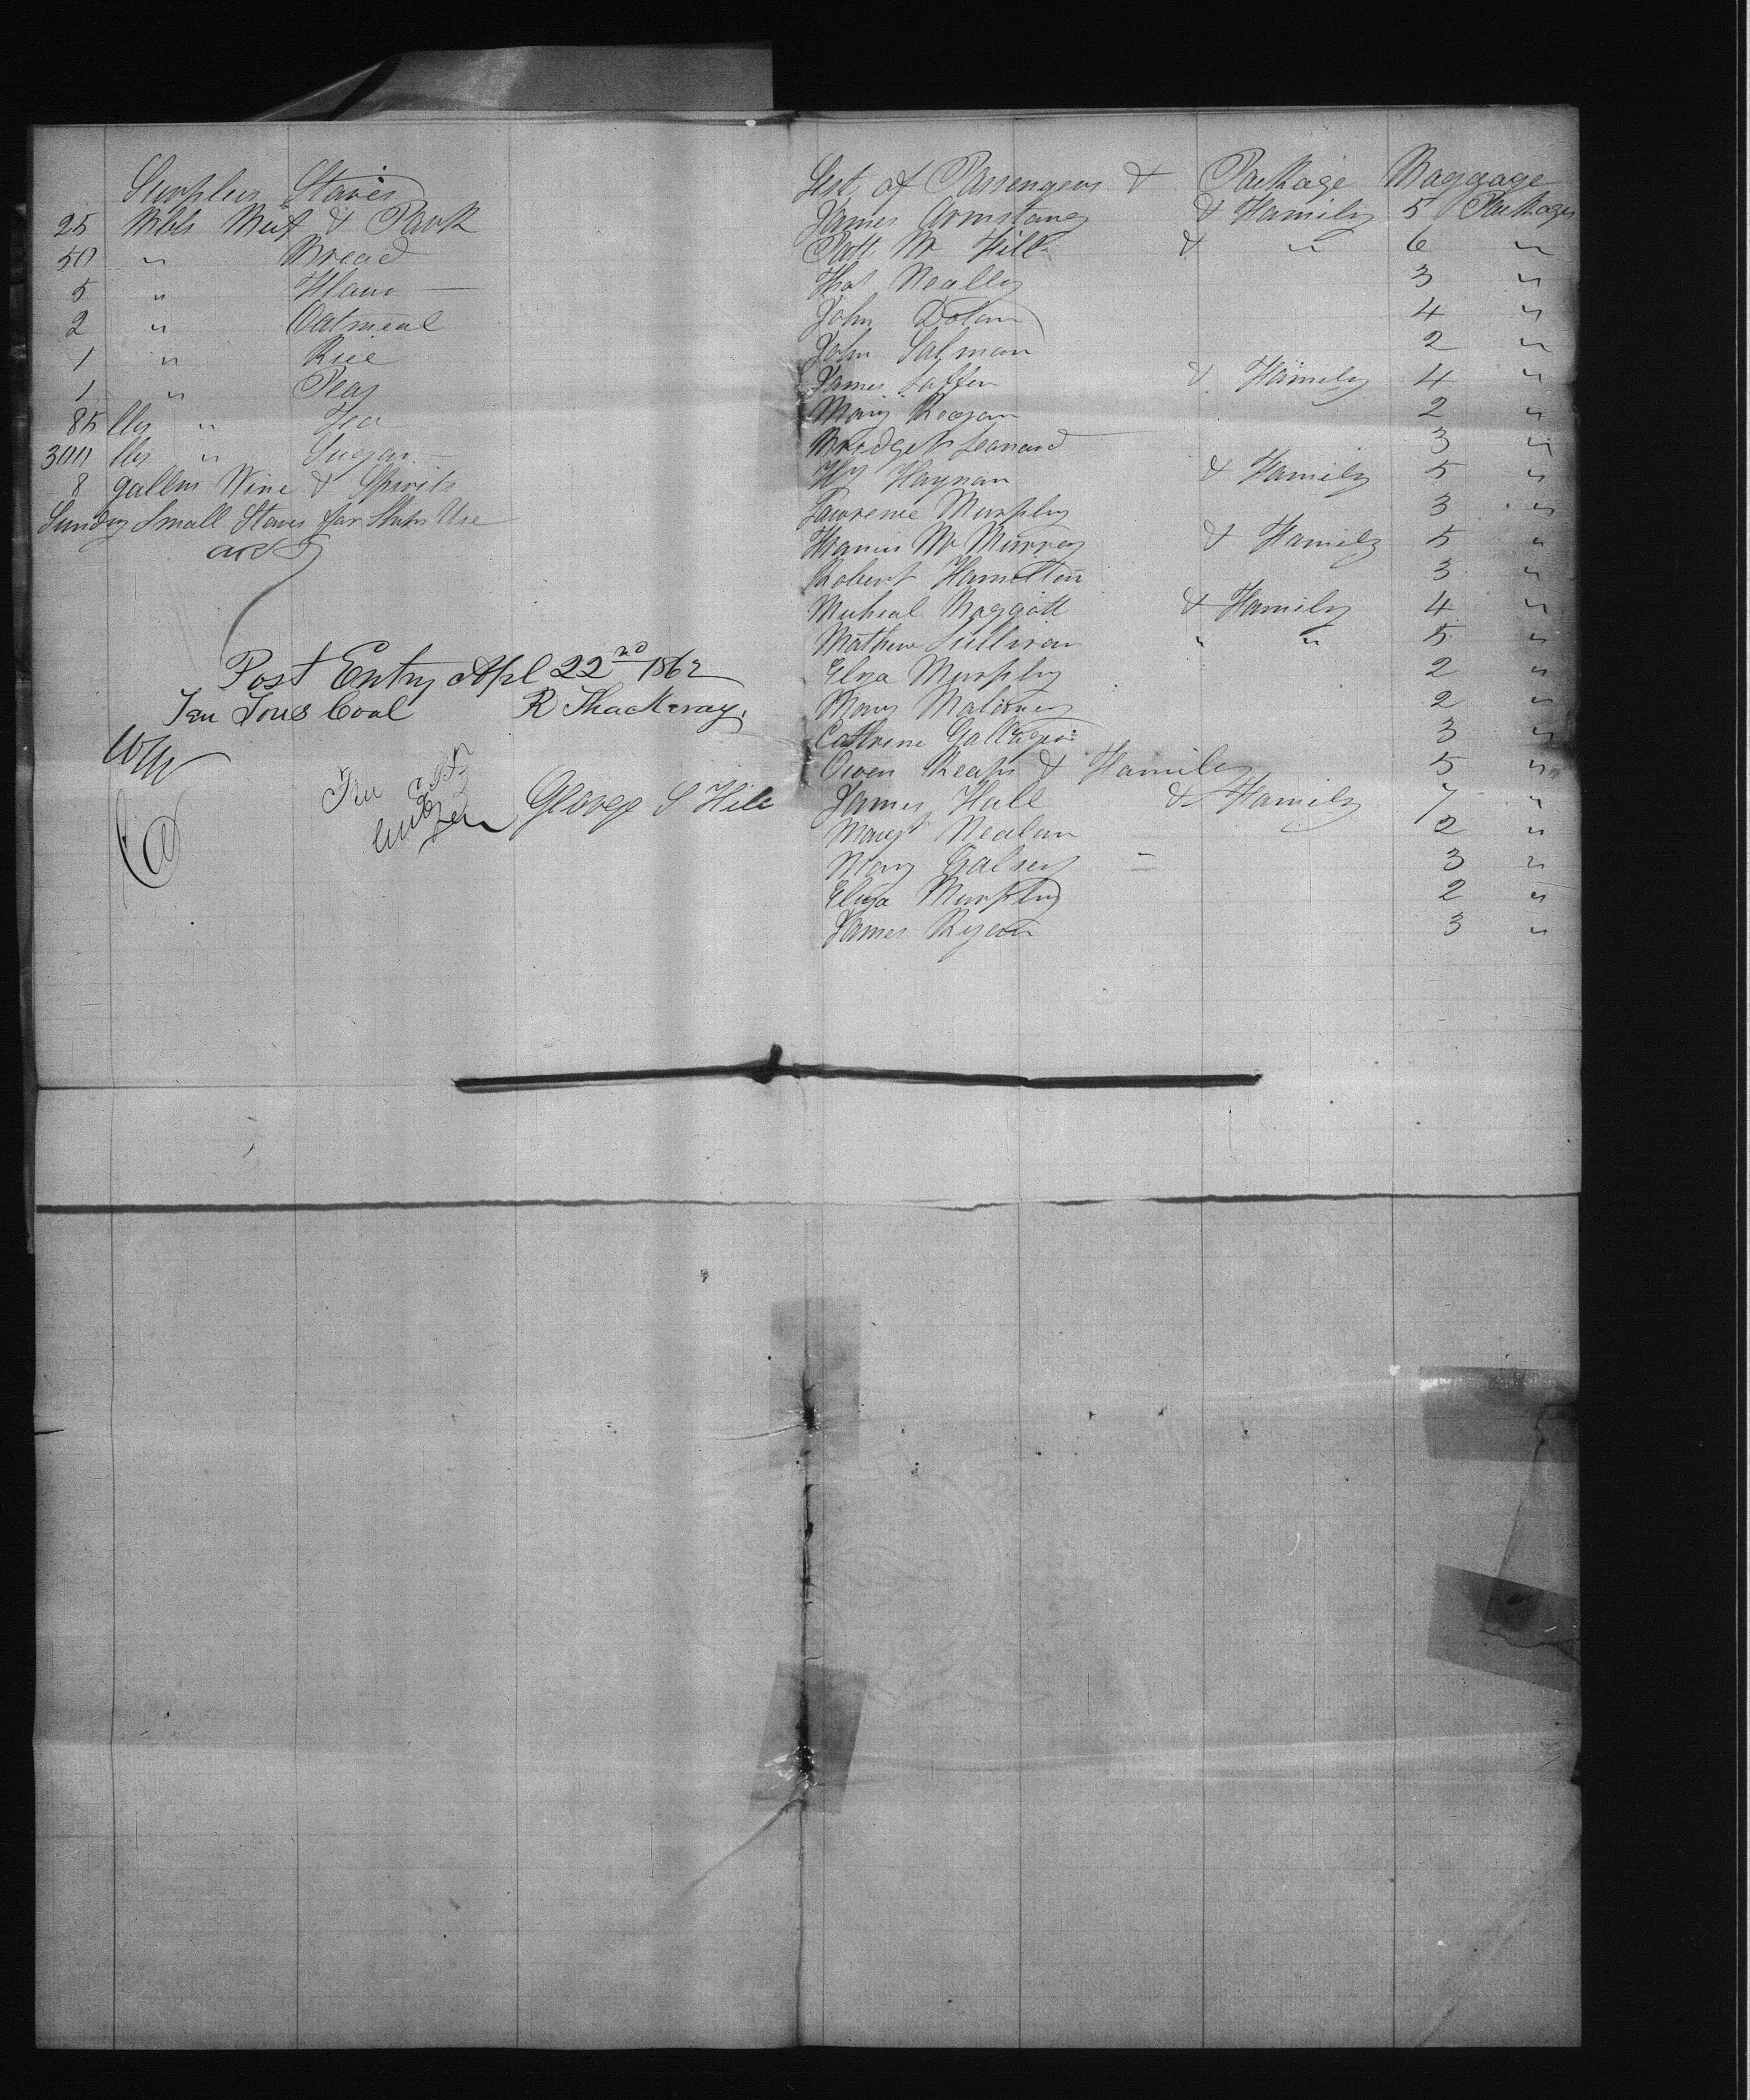 Surplus Stores
25 Bbls Beef & Pork
50 " Bread
5 " Flour
2 " Oatmeal
1 " Rice
1 " Peas
85 lbs " Tea
300 lbs " Sugar
8 gallons Wine & Spirits
Sundry Small Stores for Ships Use
Post Entry Apl 22nd 1862
Ten Tons Coal R Thackeray
George S Hill
List of Passengers & Package Baggage
James Armstong & Family 5 Packages
Patt Mc Gill & " 6 "
Thos Neally 3 "
John Dolan 4 "
John Salman 2 "
James Laffen & Family 4 "
Mary Reagan 2 "
Bridget Leonard 3 "
Haynan & Family 5 "
Lawrence Murphy 3 "
Francis Mc Murray & Family 5 "
Robert Hamilton 3 "
Micheal Baggott & Family 4 "
Mathew Sullivan " " 5 "
Eliza Murphy 2 "
Mary Maloney 2 "
Cathrine Gallagher 3 "
Owen Reaps & Family 5 "
James Hall & Family 7 "
Margt Nealan 2 "
Mary Galvey 3 "
Eliza Murphy 2 "
James Ryan 3 "